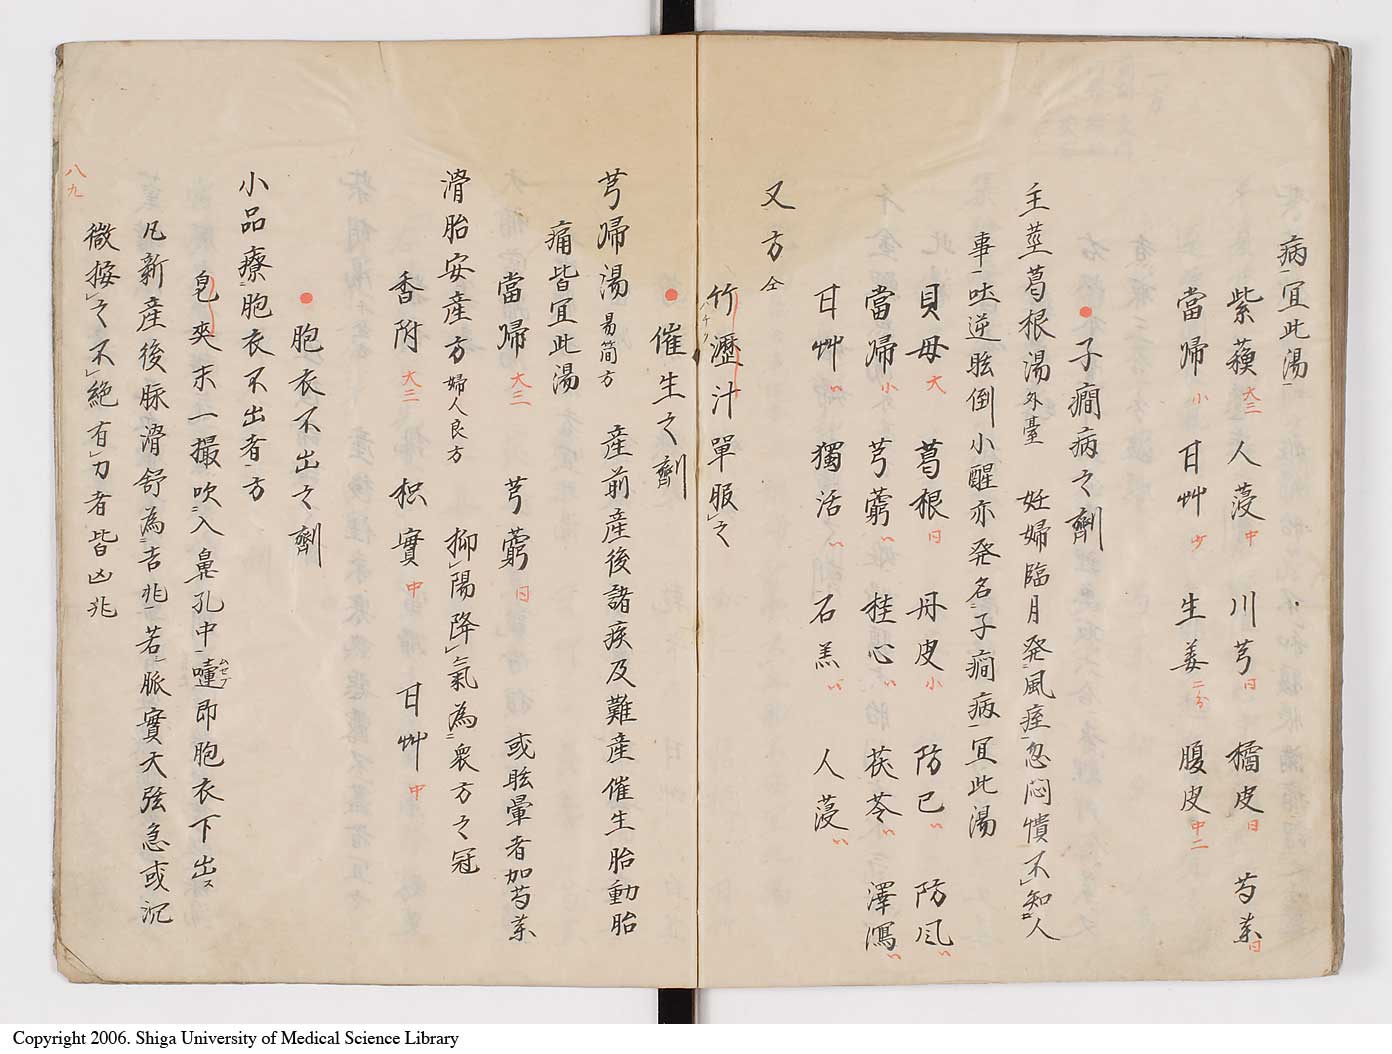 病宜此湯
紫蘓 大三 人葠 中 川芎 日 橘皮 日 芍薬 日
當帰 小 甘艸 少 生姜 二分 腹皮 中二
子癇病之劑
主莖葛根湯 外臺 妊婦臨月発風痓忽悶憒不知人
事吐逆眩倒小醒亦発名子癇病宜此湯
貝母 大 葛根 日 丹皮 小 防已 〃 防風 〃
當帰 小 芎藭 〃 桂心 〃 茯苓 〃 澤瀉 〃
甘艸 〃 獨活 〃 石羔 〃 人葠 〃
又方 仝
竹瀝汁單服之
催生之劑
芎帰湯 易简方 産前産後諸疾及難産催生胎動胎
痛皆宜此湯
當帰 大三 芎藭 日 或眩暈者加芍薬
滑胎安産方 婦人良方 抑陽降氣為衆方之冠
香附 大三 枳實 中 甘艸 中
胞衣不出之劑
小品療胞衣不出者方
皂夾末一撮吹入鼻孔中嚏ムセブ即胞衣下出ス
凡新産後脉滑舒為吉兆若脈實大弦急或沉
微按之不絶有力者皆凶兆
八九
Copyright 2006. Shiga University of Medical Science Library